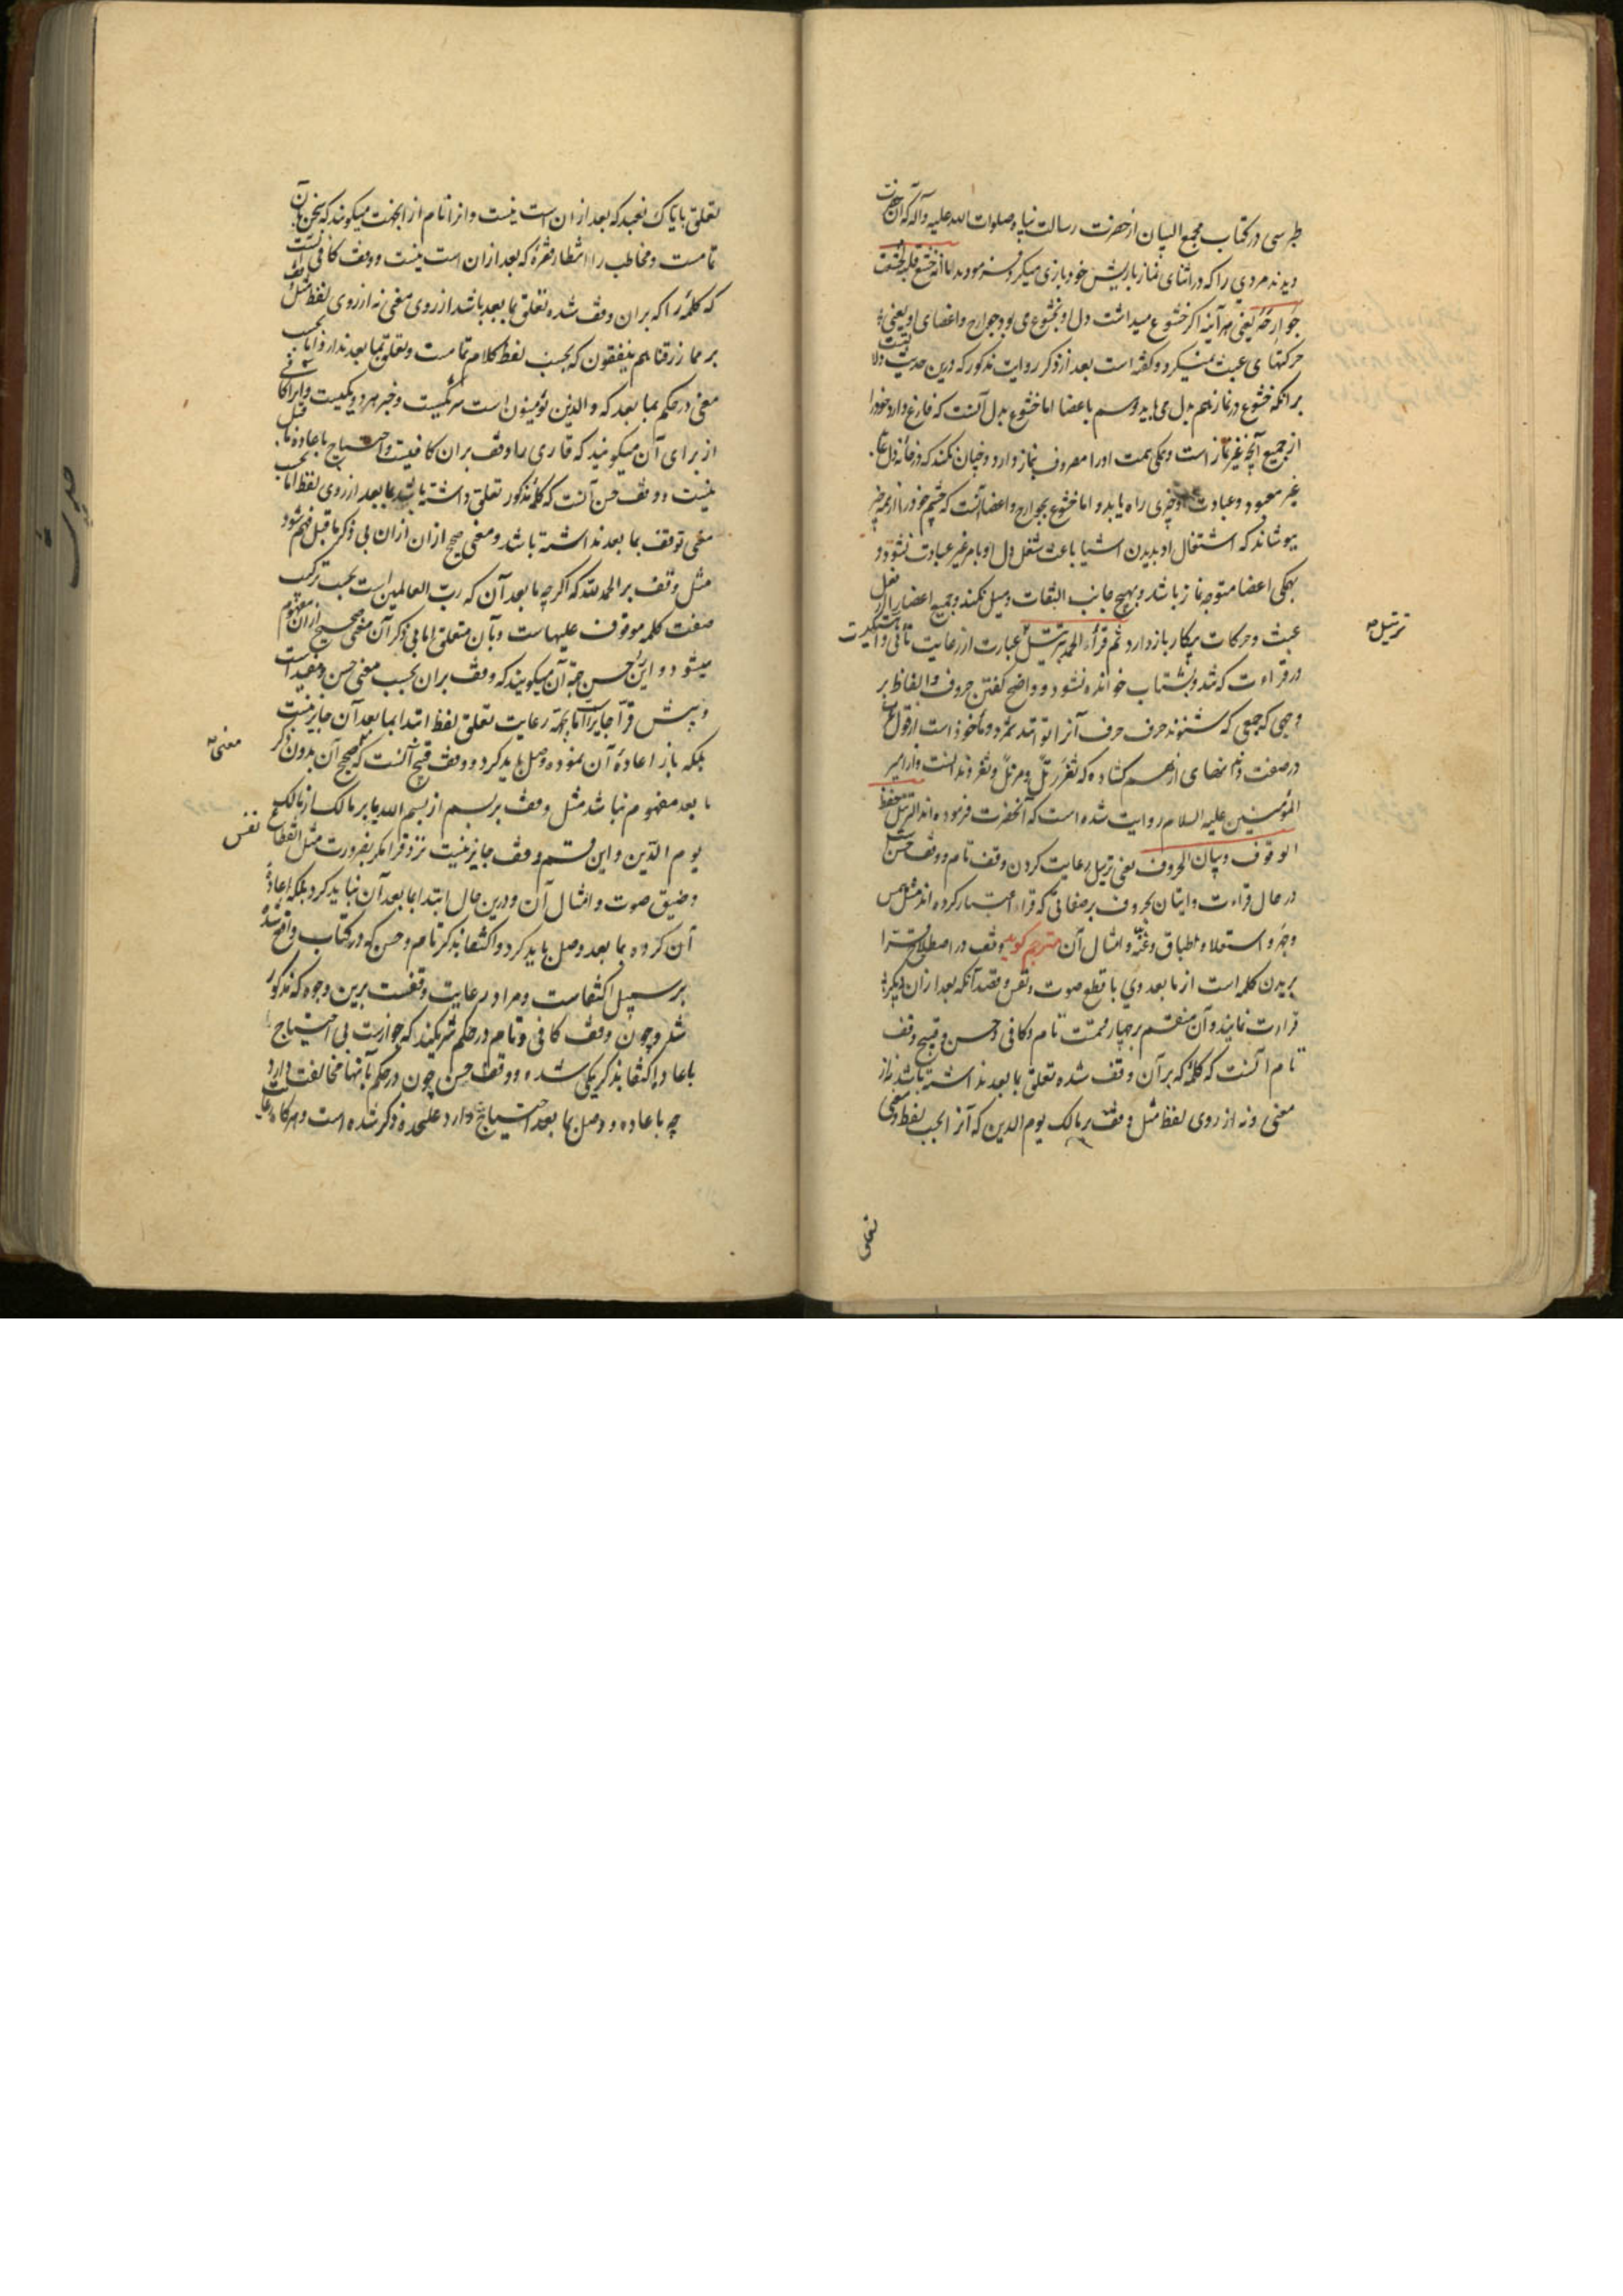 طبرسی در کتاب مجمع البیان از حضرت رسالت پناه صلوات الله علیه وآله که آن حضرت
دیدند مردی را که در اثنای نماز با ریش خود بازی میکرد فرمودند اما انه لو خشع قلبه لخشعت
جوارحه یعنی هر آینه اگر خشوع میداشت دل او بخشوع می بود جوارح و اعضای او یعنی
حرکتهای عبث نمیکرد و گفته است بعد از ذکر روایت مذکور که درین حدیث دلالتیست
برانکه خشوع در نماز هم بدل می باید و هم باعضا اما خشوع بدل آنست که فارغ دارد خود را
از جمیع آنچه غیر نماز است و همگی همت او را مصروف نماز دارد و چنان نکند که در خانه دل
غیر معبود و عبادت او چیزی راه یابد و اما خشوع بجوارح و اعضا آنست که چشم خود را از همه چیز
بپوشاند که اشتغال او بدیدن اشیا باعث شغل دل او بامر غیر عبادت نشود و
بهمگی اعضا متوجه نماز باشد و بهیچ جانب التفات و میل نکند و جمیع اعضا را از فعل
عبث و حرکات بیکار باز دارد ثم قرأ الحمد بترتیل عبارت از رعایت تأنی و
ترتیل
در قراءت که تند و بشتاب خوانده نشود و واضح گفتن حروف و الفاظ بر
وجهی که جمعی که شنوند حرف حرف آنرا توانند شمرد و ماخوذ است از قول
در صفت دندانهای از هم گشاده که ثغر رتل و مرتل و ثغر دندانست و از امیر
المؤمنین علیه السلام روایت شده است که آنحضرت فرموده اند الترتیل حفظ
الوقوف وبیان الحروف یعنی ترتیل رعایت کردن وقف تام و وقف حسن است
در حال قراءت و اتیان بحروف بر صفاتی که قراء اعتبار کرده اند مثل همس
و جهر و استعلا و اطباق و غنه و امثال آن مترجم گوید وقف در اصطلاح قرا
بریدن کلمه است از ما بعد وی با قطع صوت و نفس و قصد آنکه بعد از آن دیگر
قراءت نمایند و آن منقسم بر چهار قسمت تام و کافی و حسن و قبیح وقف
تام آنست که کلمه که بر آن وقف شده تعلق بما بعد نداشته باشد نه از
معنی و نه از روی لفظ مثل وقف بر مالک یوم الدین که آنرا بحسب لفظ و معنی
تعلق بایاک نعبد که بعد از آن است نیست و آنرا تام از آنجهت میگویند که سخن بآن
تمامست و مخاطب را انتظار فقره که بعد از آن است نیست و وقف کافی آنست
که کلمه را که بر آن وقف شده تعلق بما بعد باشد از روی معنی نه از روی لفظ مثل وقف
بر مما رزقناهم ینفقون که بحسب لفظ کلام تمامست و تعلق بما بعد ندارد و اما بحسب
معنی در حکم بما بعد که والذین یؤمنون است شریکست و خبر هر دو یکیست و آنرا کافی
از برای آن میگویند که قاری را وقف بر آن کافیست و احتیاج باعاده ما قبل
نیست و وقف حسن آنست که کلمه مذکور تعلق داشته باشد بما بعد از روی لفظ اما بحسب
معنی توقف بما بعد نداشته باشد و معنی صحیح از آن بی ذکر ما قبل فهم شود
مثل وقف بر الحمد لله که اگر چه ما بعد آن که رب العالمین است بحسب ترکیب
صفت کلمه موقوف علیهاست و بآن متعلق اما بی ذکر آن معنی صحیح از آن مفهوم
میشود و این را حسن جهة آن میگویند که وقف بر آن بحسب معنی حسن و مفید است
و پیش قرآ جایز است اما بجهة رعایت تعلق لفظ ابتدا بما بعد آن جایز نیست
بلکه باز اعاده آن نموده وصل باید کرد و وقف قبیح آنست که صحیح آن بدون ذکر
معنی
ما بعد مفهوم نباشد مثل وقف بر بسم از بسم الله یا بر مالک از مالک
یوم الدین و این قسم وقف جایز نیست نزد قرا مگر بضرورت مثل انقطاع
نفس
و ضیق صوت و امثال آن و درین حال ابتدا بما بعد آن نباید کرد بلکه اعاده
آن کرده بما بعد وصل باید کرد و اکتفا بذکر تام و حسن که در کتاب واقع شده
بر سبیل اکتفاست و مراد رعایت وقفست برین وجوه که مذکور
شد و چون وقف کافی و تام در حکم شریکند که جوازست بی احتیاج
باعاده اکتفا بذکر یکی شده و وقف حسن چون در حکم بآنها مخالفت دارد
چه باعاده و وصل بما بعد احتیاج دارد علیحده ذکر شده است و هرگاه رعایت
تعلق